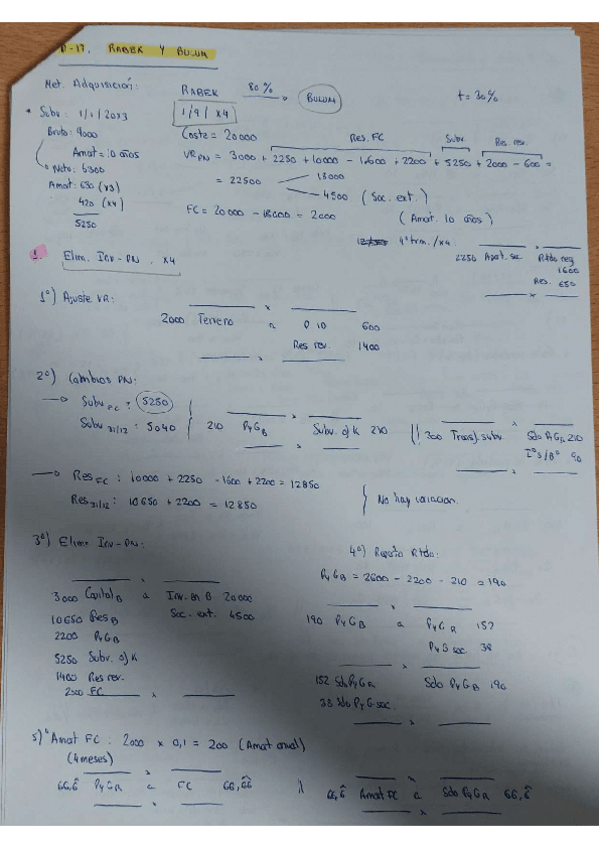 P-17. RABEK Y BULUM
Met. Adquisición:
RABEK 80% BULUM
t = 30%
* Subv: 1/1/20x3
Bruto: 9000
Amat = 10 años
Neto: 6300
Amat: 630 (x3)
420 (x4)
5250
1/9/x4
Coste = 20000
Res. FC Subv. Res. rev.
VR PN = 3000 + 2250 + 10000 - 1600 + 2200 + 5250 + 2000 - 600 =
= 22500 18000
4500 (Soc. ext.)
FC = 20000 - 18000 = 2000 (Amort. 10 años)
4º trm./x4
2250 Apat. soc Rtdo neg 1600
Res. 650
1 Elim. Inv-PN. x4
1º) Ajuste VR:
2000 Terreno a PID 600
Res rev. 1400
2º) Cambios PN:
→ Subv FC: 5250
Subv 31/12: 5040
210 PyG B Subv. o/K 210
300 Transf. subv. Sdo PyG B 210
Iº s/Bº 90
→ Res FC: 10000 + 2250 - 1600 + 2200 = 12850
Res 31/12: 10650 + 2200 = 12850
No hay variacion
3º) Elim Inv-PN:
3000 Capital B a Inv. en B 20000
10650 Res B Soc. ext. 4500
2200 PyG B
5250 Subv. o/K
1400 Res rev.
2000 FC
4º) Reparto Rtdo:
PyG B = 2600 - 2200 - 210 = 190
190 PyG B a PyG R 152
PyG soc. 38
152 Sdo PyG R Sdo PyG B 190
38 Sdo PyG soc.
5) Amat FC: 2000 x 0,1 = 200 (Amat anual)
(4 meses)
66,6 PyG R a FC 66,66
66,6 Amat FC a Sdo PyG R 66,6